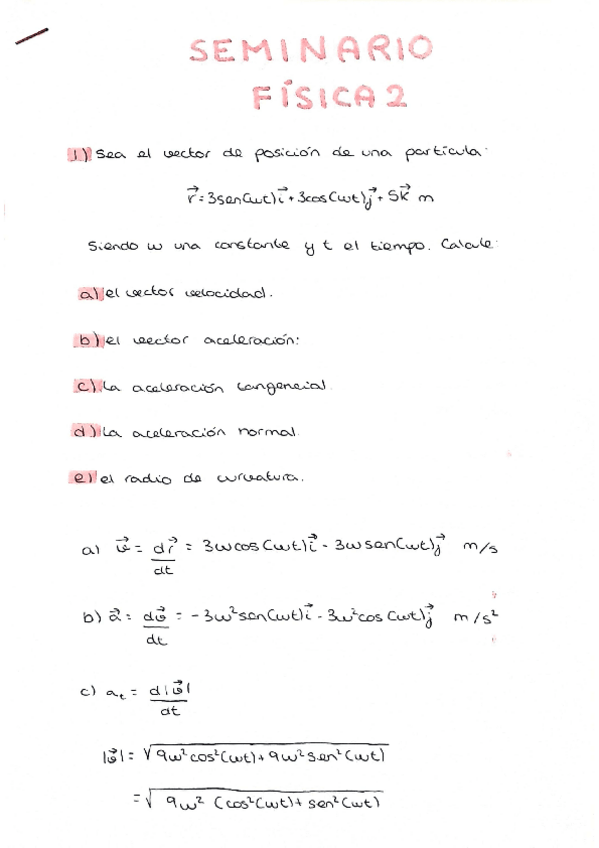 SEMINARIO
FÍSICA 2
1) Sea el vector de posición de una partícula:
r⃗ = 3sen(wt)i⃗ + 3cos(wt)j⃗ + 5k⃗ m
Siendo w una constante y t el tiempo. Calcule:
a) el vector velocidad.
b) el vector aceleración:
c) la aceleración tangencial.
d) la aceleración normal.
e) el radio de curvatura.
a) v⃗ = dr⃗/dt = 3wcos(wt)i⃗ - 3wsen(wt)j⃗ m/s
b) a⃗ = dv⃗/dt = -3w²sen(wt)i⃗ - 3w²cos(wt)j⃗ m/s²
c) aₜ = d|v⃗|/dt
|v⃗| = √9w²cos²(wt) + 9w²sen²(wt)
= √9w² (cos²(wt) + sen²(wt)